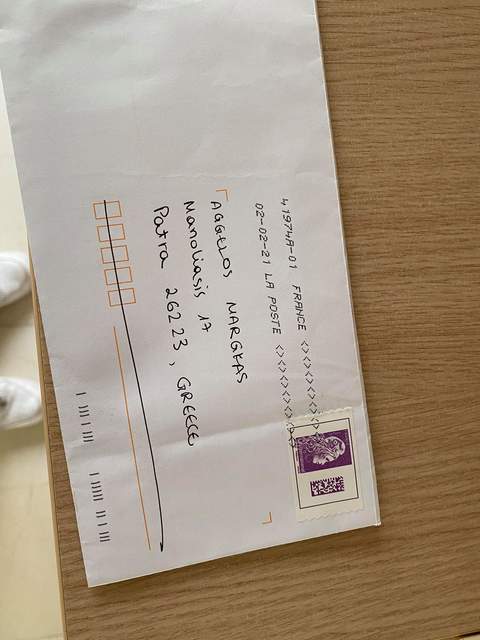 41974A-01 FRANCE <><><><><><><>
02-02-21 LA POSTE <><><><><><><>
AGGELOS MARGKAS
Manoliasis 17
Patra 26223, GREECE